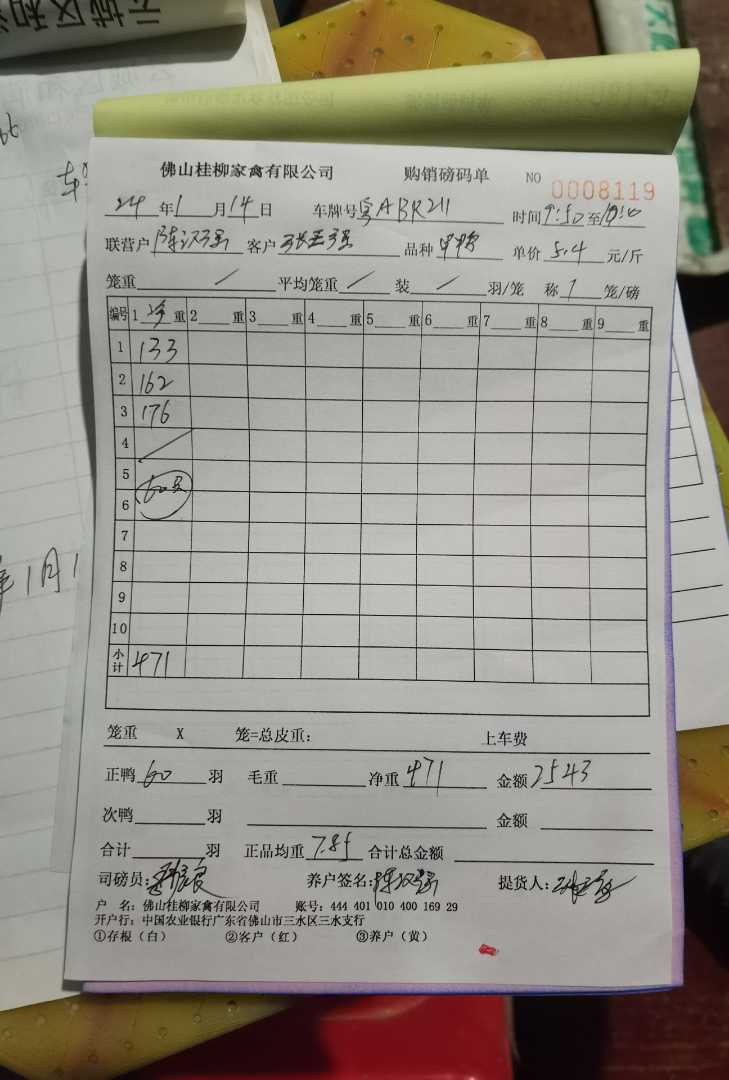 佛山桂柳家禽有限公司 购销磅码单 NO 0008119
24年1月14日 车牌号粤ABR211 时间9:50至10:10
联营户 客户 品种 单价 5.4 元/斤
笼重 / 平均笼重 / 装 / 羽/笼 称 1 笼/磅
编号 1净重 2重 3重 4重 5重 6重 7重 8重 9重
1 133
2 162
3 176
4
5
6 60只
7
8
9
10
小计 471
笼重 X 笼=总皮重: 上车费
正鸭 60 羽 毛重 净重 471 金额 2543
次鸭 羽 金额
合计 羽 正品均重 7.85 合计总金额
司磅员: 养户签名: 提货人:
户 名: 佛山桂柳家禽有限公司 账号: 444 401 010 400 169 29
开户行: 中国农业银行广东省佛山市三水区三水支行
①存根（白） ②客户（红） ③养户（黄）
年1月1